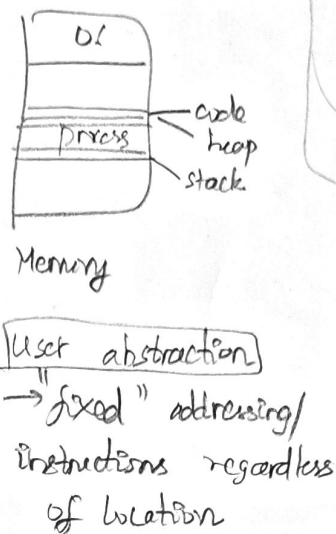 OS
code
heap
process
stack
Memory
User abstraction
→ "fixed" addressing/
instructions regardless
of location